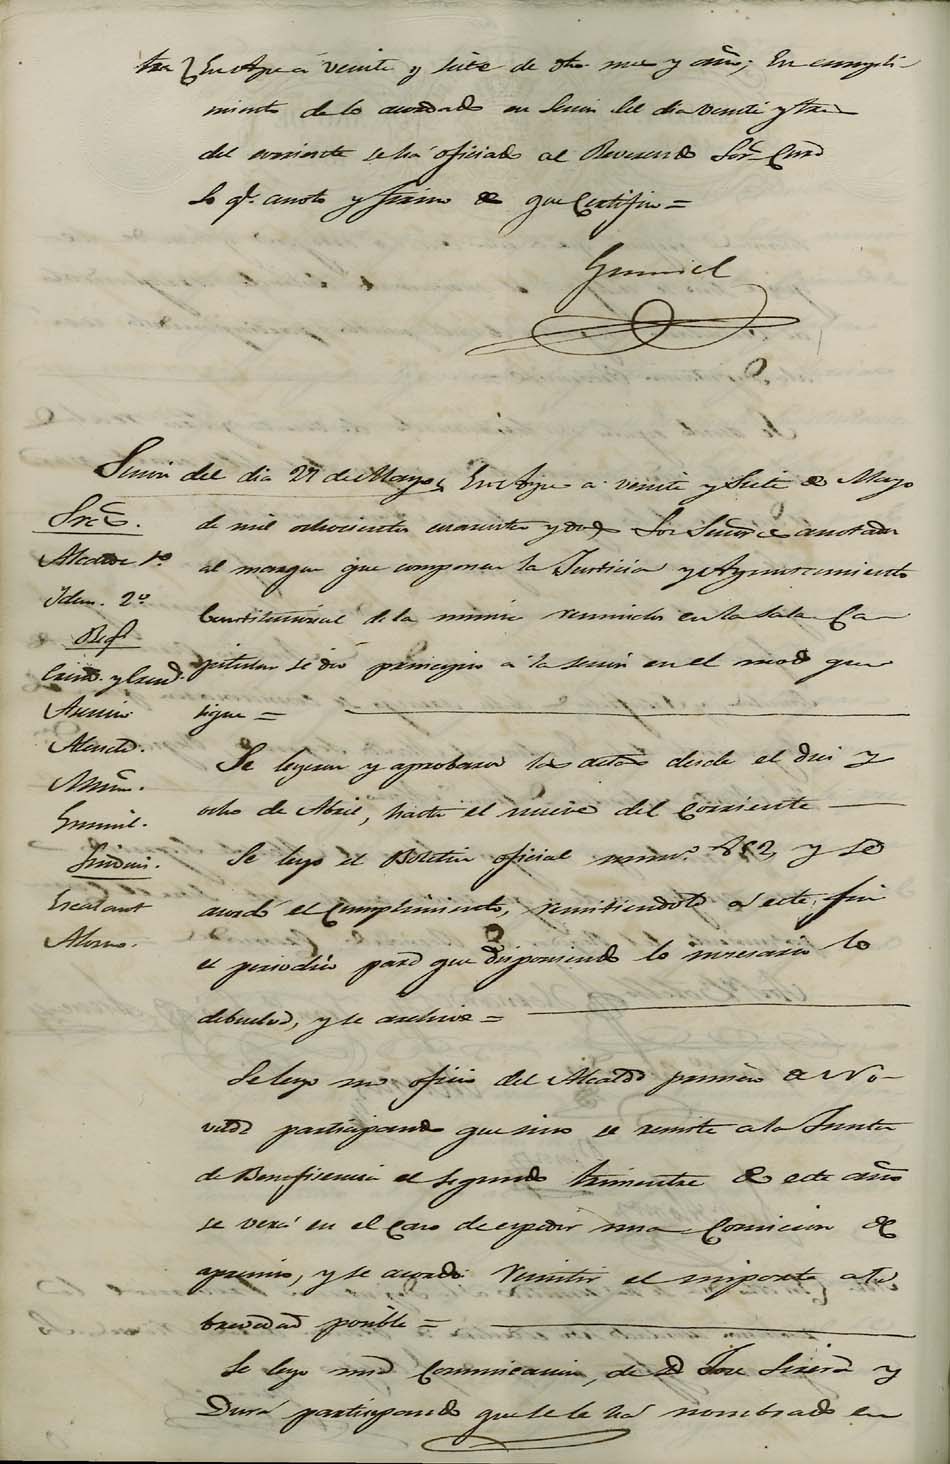 En Aspe á veinte y siete de dho mes y año; En cumpli-
miento de lo acordado en Sesion del dia veinte y tres
del corriente se há oficiado al Reverendo Sor. Cura
lo qe. anoto y firmo de que Certifico =
Gumiel
Sesion del dia 27 de Mayo En Aspe a veinte y Siete de Mayo
de mil ochocientos cuarenta y dos, Los Señores anotados
al margen que componen la Justicia y Ayuntamiento
Constitucional de la misma reunidos en la Sala Ca-
pitular se dió principio á la sesion en el modo que
sigue =
Sres.
Alcalde 1º.
Idem. 2º
Regs.
Asensio
Gumiel.
Sindicos.
Escalant
Alonso.
Se leyeron y aprobaron las actas desde el diez y
ocho de Abril, hasta el nueve del Corriente
Se leyo el Boletin oficial numº. y se
acordó el Cumplimiento, remitiendolo á este fin
el periodico para que disponiendo lo necesario lo
debuelva, y se archive =
Se leyo un oficio del Alcalde primero de No-
velda participando que sino se remite a la Junta
de Beneficencia el segundo trimestre de este año
se verá en el Caso de expedir una Comision de
apremio, y se acordó remitir el importe a la
brevedad posible =
Se leyo una Comunicacion, de D Jose Sirera y
Durá participando que se le há nombrado en